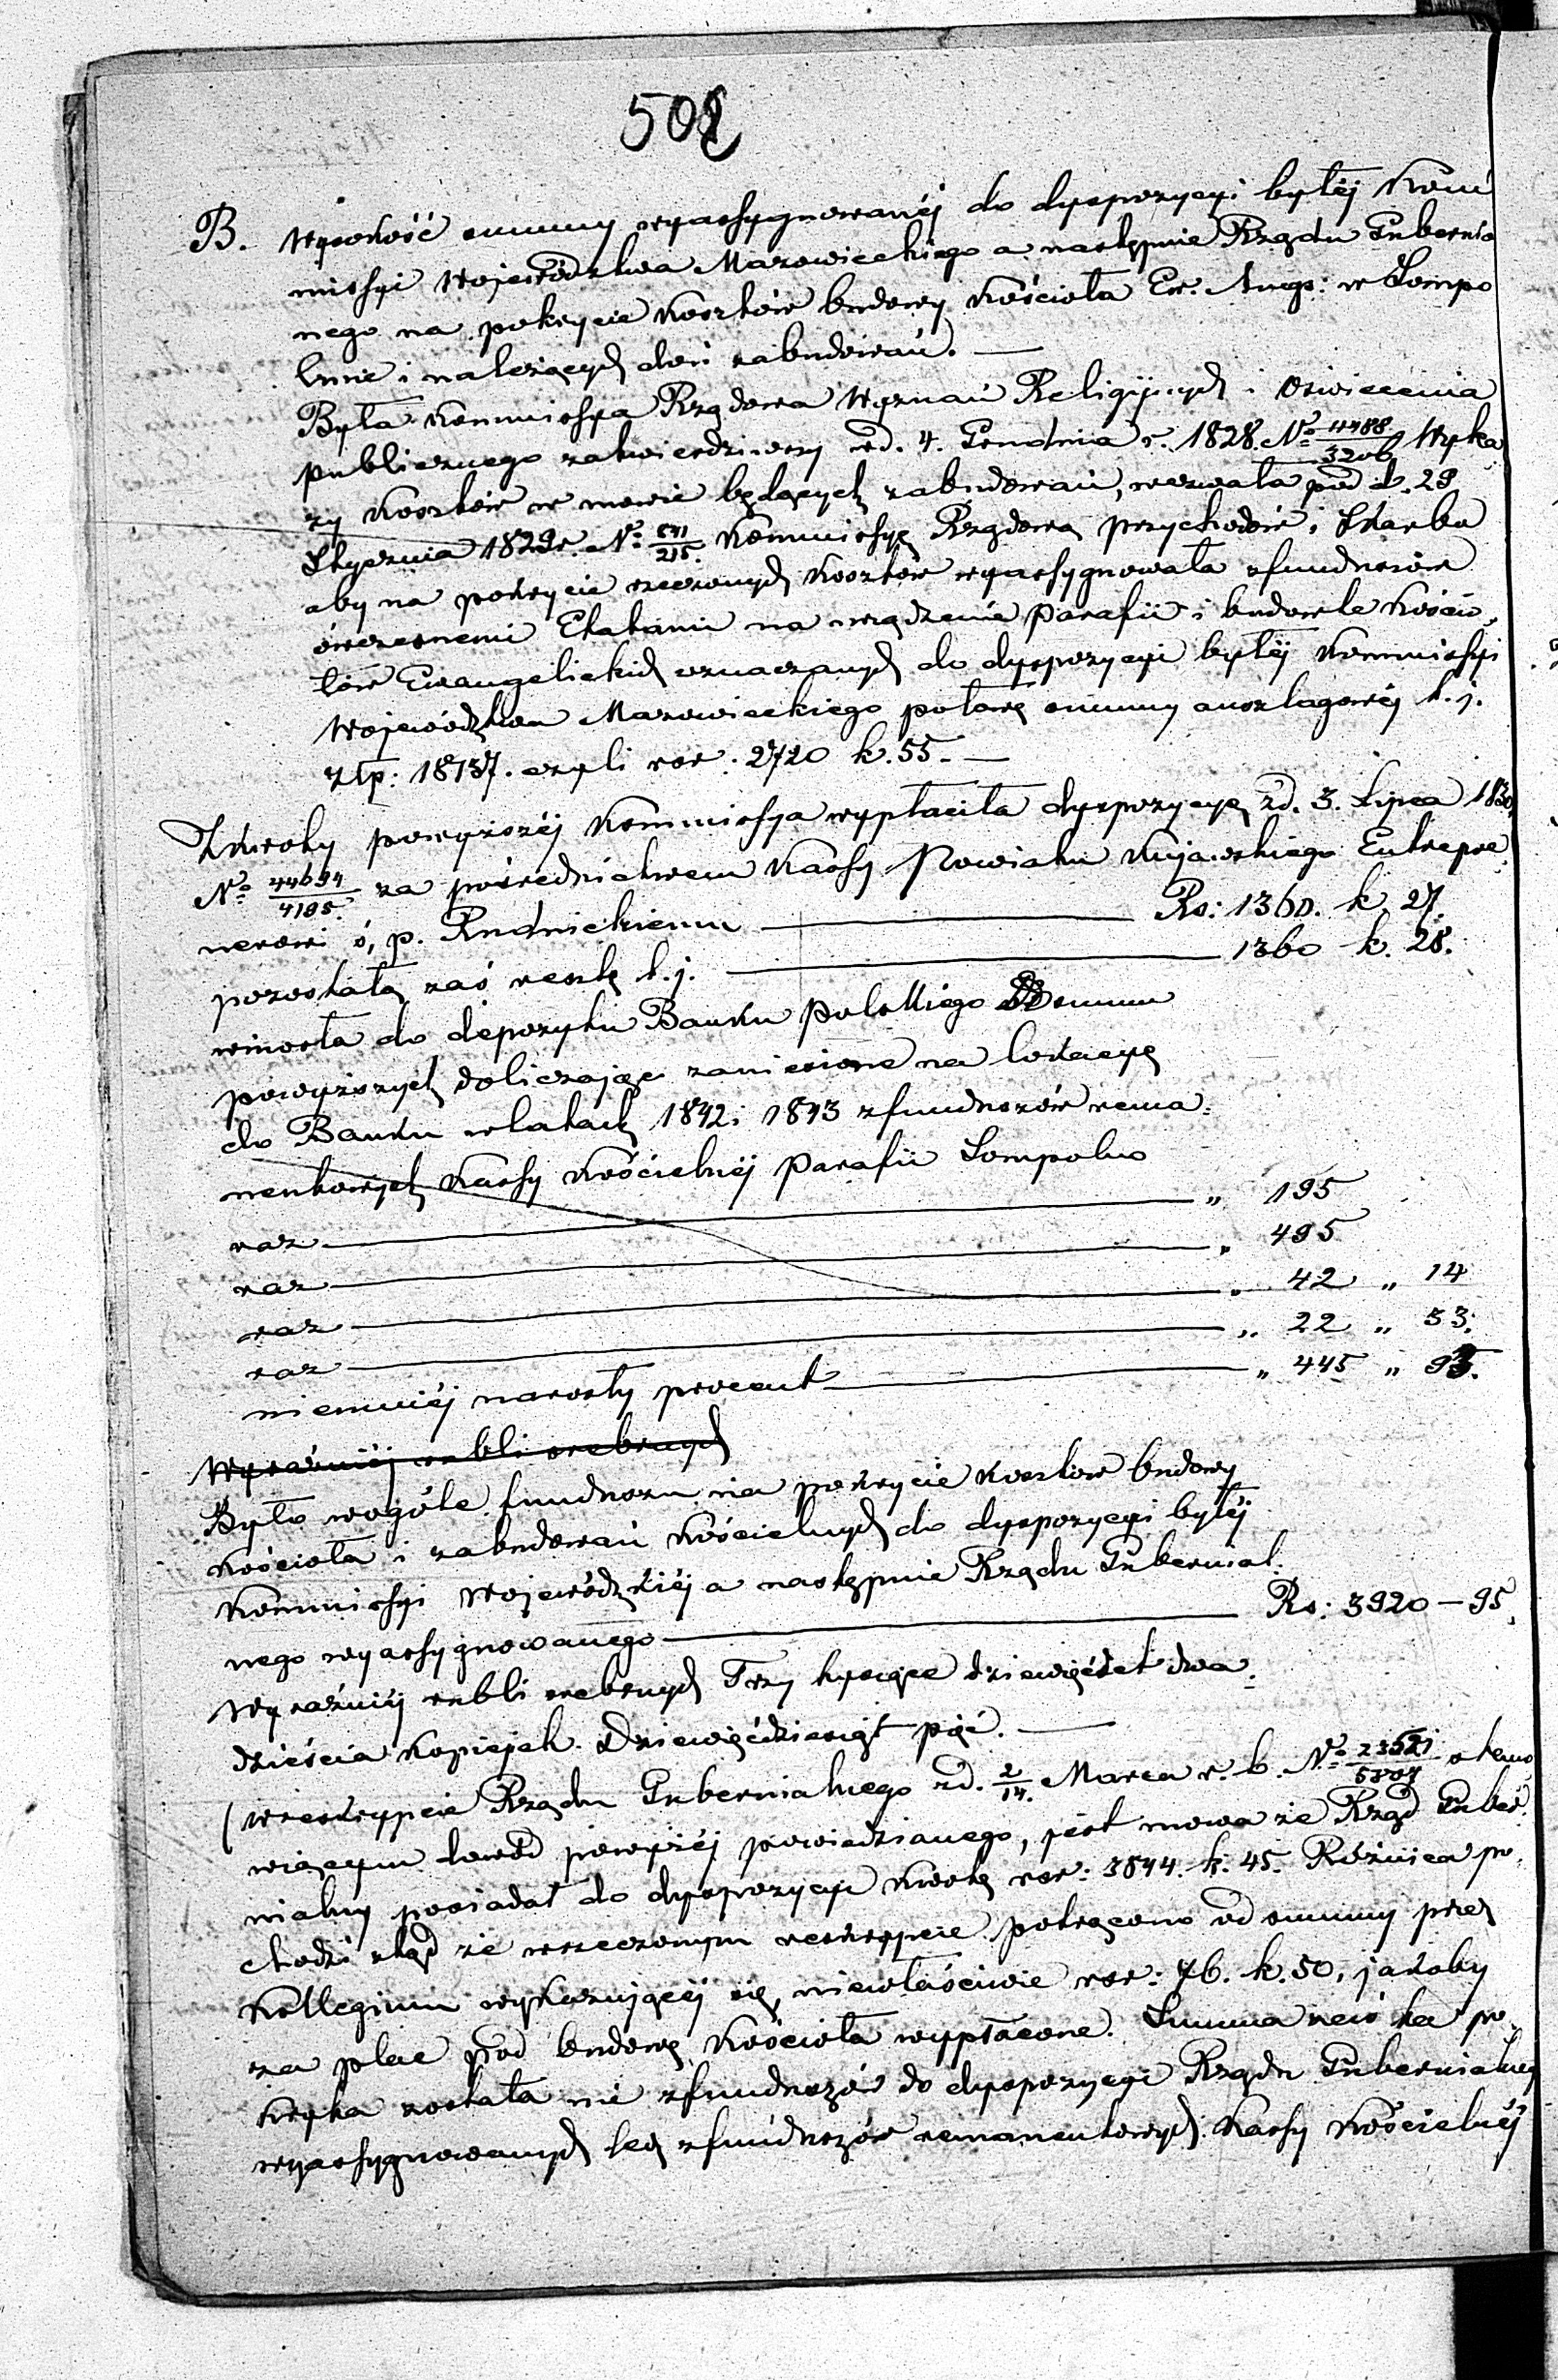 502
B. Wysokość summy wyassygnowanéj do dyspozycyi byłéj Kom
missyi Województwa Mazowieckiego a następnie Rządu Gubernia
nego na pokrycie kosztów budowy Kościoła Ew. Augs: w Sompo
lnie i należących doń zabudowań. —
Była Kommissya Rządowa Wyznań Religijnych i Oświecenia
publicznego zatwierdziwszy pd. 4. Grudnia r. 1828. No 4488/3206 Wyka
zy kosztów w mowie będących zabudowań, wezwała pod d. 29
Stycznia 1829r. No 541/215. Kommissyę Rządową przychodów i Skarbu
aby na pokrycie rzeczonych kosztów wyassygnowała z funduszów
ówczesnemi Etatami na urządzenie Parafii i budowle Kościo-
łów Ewangelickich oznaczonych do dyspozycyi byłéj Kommissyi
Województwa Mazowieckiego połowę summy anszlagowéj t. j.
Złp: 18137. czyli rsr: 2720 k. 55. —
Z kwoty powyższéj Kommissya wypłaciła dyspozycyą zd. 3. Lipca 1830
No 44694/4195. za pośrednictwem Kassy Powiatu Kujawskiego Entrepre
nerowi ś. p. Rudnickiemu — Rs: 1360. k. 27.
pozostałą zaś resztę t. j. — 1360 k. 28.
wniosła do depozytu Banku Polskiego Do summ
powyższych doliczając zaniesione na lokacyę
do Banku w latach 1842 i 1843 z funduszów rema=
nentowych Kassy Kościelnéj Parafii Sompolno
raz — " 195
raz — " 495
raz — " 42 " 14
raz — " 22 " 53.
niemniéj narosły procent — " 445 " 93.
Wyraźniéj rubli srebrnych
Było wogóle funduszu na pokrycie kosztów budowy
Kościoła i zabudowań Kościelnych do dyspozycyi byłéj
Kommissyi Wojewódzkiéj a następnie Rządu Gubernial.
nego wyassygnowanego — Rs: 3920 — 95.
Wyraźniéj rubli srebrnych Trzy tysiące dziewięćset dwa=
dzieścia kopiejek Dziewięćdziesiąt pięć. —
(W reskrypcie Rządu Gubernialnego zd. 2/14. Marca r. b. No 23521/5807 stano
wiącym dowód powyżéj powiedzianego, jest mowa że Rząd Guber
nialny posiadał do dyspozycyi kwotę rsr: 3844. k. 45. Różnica po
chodzi ztąd że w rzeczonym reskrypcie potrącono od summy przez
Kollegium wykazującéj się, niewłaściwie rsr: 76. k. 50, jakoby
za plac pod budowę Kościoła wypłacone. Summa zaś ta po-
kryta została nie z funduszów do dyspozycyi Rządu Gubernialneg
wyassygnowanych lecz z funduszów remanentowych Kassy Kościelnéj